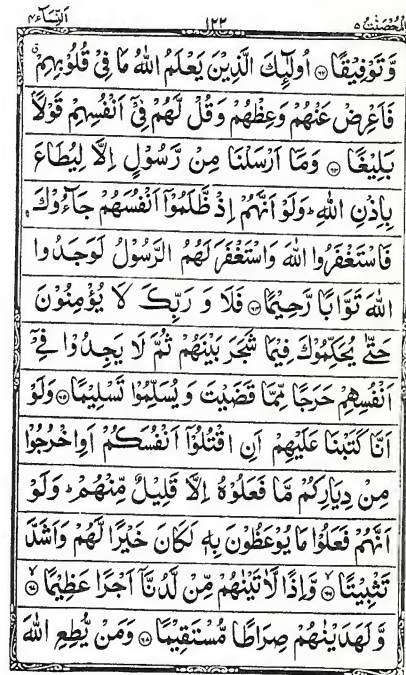 النسآء ٤
١٢٢
المحصنت ٥
وَّ تَوْفِيْقًا ﴿٦٢﴾ اُولٰٓئِكَ الَّذِيْنَ يَعْلَمُ اللّٰهُ مَا فِيْ قُلُوْبِهِمْ ۗ
فَاَعْرِضْ عَنْهُمْ وَعِظْهُمْ وَقُلْ لَّهُمْ فِيْٓ اَنْفُسِهِمْ قَوْلًاۢ
بَلِيْغًا ﴿٦٣﴾ وَمَآ اَرْسَلْنَا مِنْ رَّسُوْلٍ اِلَّا لِيُطَاعَ
بِاِذْنِ اللّٰهِ ؕ وَلَوْ اَنَّهُمْ اِذْ ظَّلَمُوْٓا اَنْفُسَهُمْ جَآءُوْكَ
فَاسْتَغْفَرُوا اللّٰهَ وَاسْتَغْفَرَ لَهُمُ الرَّسُوْلُ لَوَجَدُوا
اللّٰهَ تَوَّابًا رَّحِيْمًا ﴿٦٤﴾ فَلَا وَ رَبِّكَ لَا يُؤْمِنُوْنَ
حَتّٰى يُحَكِّمُوْكَ فِيْمَا شَجَرَ بَيْنَهُمْ ثُمَّ لَا يَجِدُوْا فِيْٓ
اَنْفُسِهِمْ حَرَجًا مِّمَّا قَضَيْتَ وَ يُسَلِّمُوْا تَسْلِيْمًا ﴿٦٥﴾ وَلَوْ
اَنَّا كَتَبْنَا عَلَيْهِمْ اَنِ اقْتُلُوْٓا اَنْفُسَكُمْ اَوِ اخْرُجُوْا
مِنْ دِيَارِكُمْ مَّا فَعَلُوْهُ اِلَّا قَلِيْلٌ مِّنْهُمْ ؕ وَلَوْ
اَنَّهُمْ فَعَلُوْا مَا يُوْعَظُوْنَ بِهٖ لَكَانَ خَيْرًا لَّهُمْ وَاَشَدَّ
تَثْبِيْتًا ﴿٦٦﴾ وَّاِذًا لَّاٰتَيْنٰهُمْ مِّنْ لَّدُنَّآ اَجْرًا عَظِيْمًا ﴿٦٧﴾
وَّ لَهَدَيْنٰهُمْ صِرَاطًا مُّسْتَقِيْمًا ﴿٦٨﴾ وَمَنْ يُّطِعِ اللّٰهَ